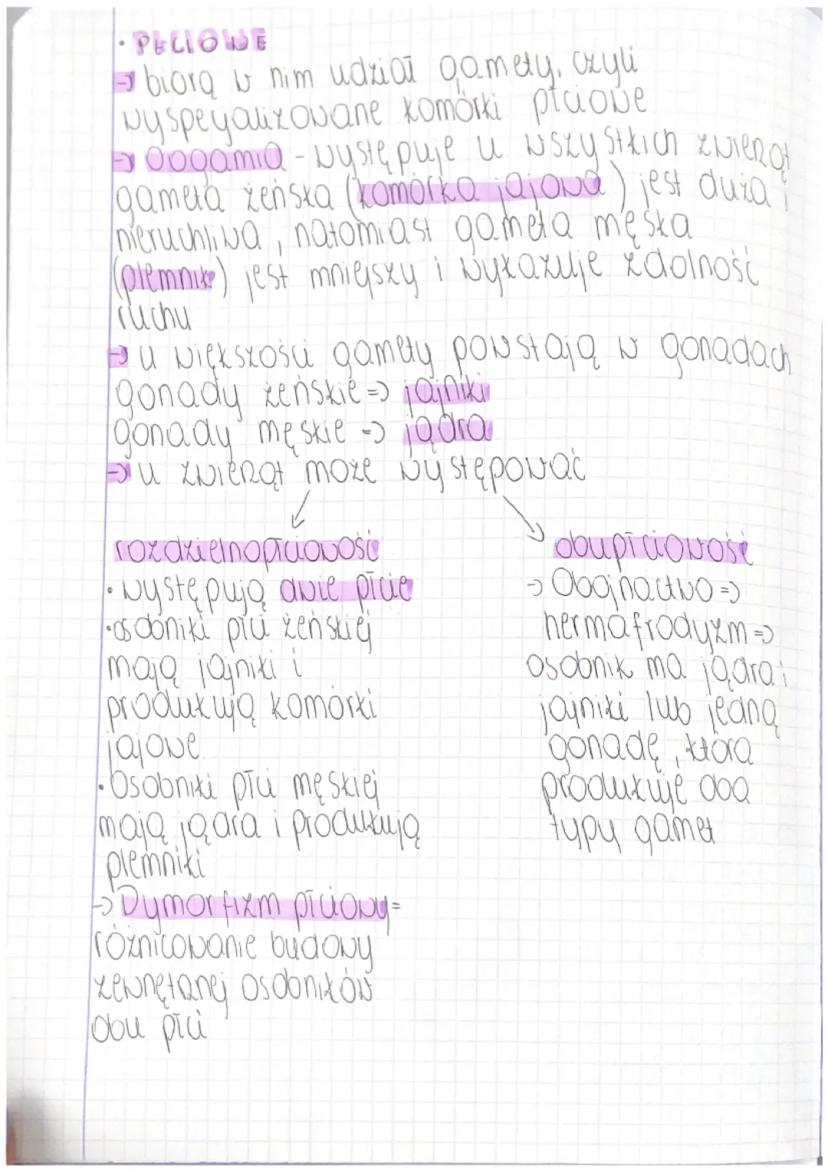 • PŁCIOWE
→ biorą w nim udział gamety, czyli
wyspecjalizowane komórki płciowe
→ Oogamia - występuje u wszystkich zwierząt
gameta żeńska (komórka jajowa) jest duża i
nieruchliwa, natomiast gameta męska
(plemnik) jest mniejszy i wykazuje zdolność
ruchu
→ u większości gamety powstają w gonadach
gonady żeńskie => jajniki
gonady męskie => jądra
→ u zwierząt może występować
rozdzielnopłciowość
• występują dwie płcie
• osobniki płci żeńskiej
mają jajniki i
produkują komórki
jajowe
• Osobniki płci męskiej
mają jądra i produkują
plemniki
→ Dymorfizm płciowy =
różnicowanie budowy
zewnętrznej osobników
obu płci
obupłciowość
→ Obojnactwo =>
hermafrodyzm =>
osobnik ma jądra i
jajniki lub jedną
gonadę, która
produkuje oba
typy gamet